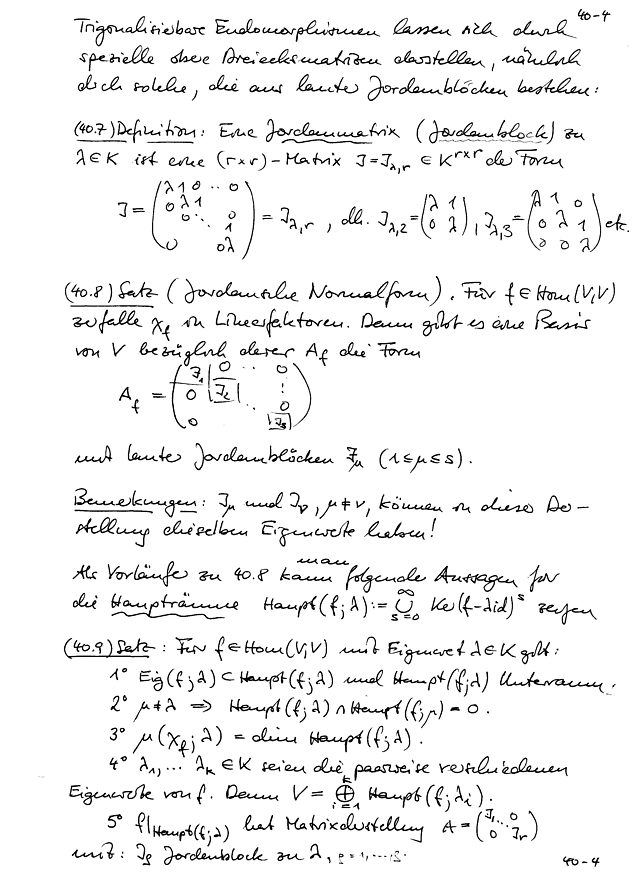 40-4
Trigonalisierbare Endomorphismen lassen sich durch
spezielle obere Dreiecksmatrizen darstellen, nämlich
durch solche, die aus lauter Jordanblöcken bestehen:
(40.7) Definition: Eine Jordanmatrix (Jordanblock) zu
λ∈K ist eine (r×r)-Matrix J=J_{λ,r} ∈ K^{r×r} der Form
J = (λ 1 0 ·· 0; 0 λ 1; 0 ·. 0; 1; 0 0 λ) = J_{λ,r}, dh. J_{λ,2} = (λ 1; 0 λ), J_{λ,3} = (λ 1 0; 0 λ 1; 0 0 λ) etc.
(40.8) Satz (Jordansche Normalform). Für f∈Hom(V,V)
zerfalle χ_f in Linearfaktoren. Dann gibt es eine Basis
von V bezüglich derer A_f die Form
A_f = (J_1 0 ·· 0; 0 J_2 ·· 0; 0 J_s)
mit lauter Jordanblöcken J_μ (1≤μ≤s).
Bemerkungen: J_μ und J_ν, μ≠ν, können in dieser Dar-
stellung dieselben Eigenwerte haben!
Als Vorläufer zu 40.8 kann man folgende Aussagen für
die Haupträume Haupt(f;λ) := ∪_{s=0}^∞ Ker(f-λid)^s zeigen
(40.9) Satz: Für f∈Hom(V,V) mit Eigenwert λ∈K gilt:
1° Eig(f;λ) ⊂ Haupt(f;λ) und Haupt(f;λ) Unterraum.
2° μ≠λ ⇒ Haupt(f;λ) ∩ Haupt(f;μ) = 0.
3° μ(χ_f;λ) = dim Haupt(f;λ).
4° λ_1,... λ_k ∈ K seien die paarweise verschiedenen
Eigenwerte von f. Dann V = ⊕_{i=1}^k Haupt(f;λ_i).
5° f|_{Haupt(f;λ)} hat Matrixdarstellung A = (J_1 ·. 0; 0 J_r)
mit: J_ρ Jordanblock zu λ, ρ=1,...,
40-4